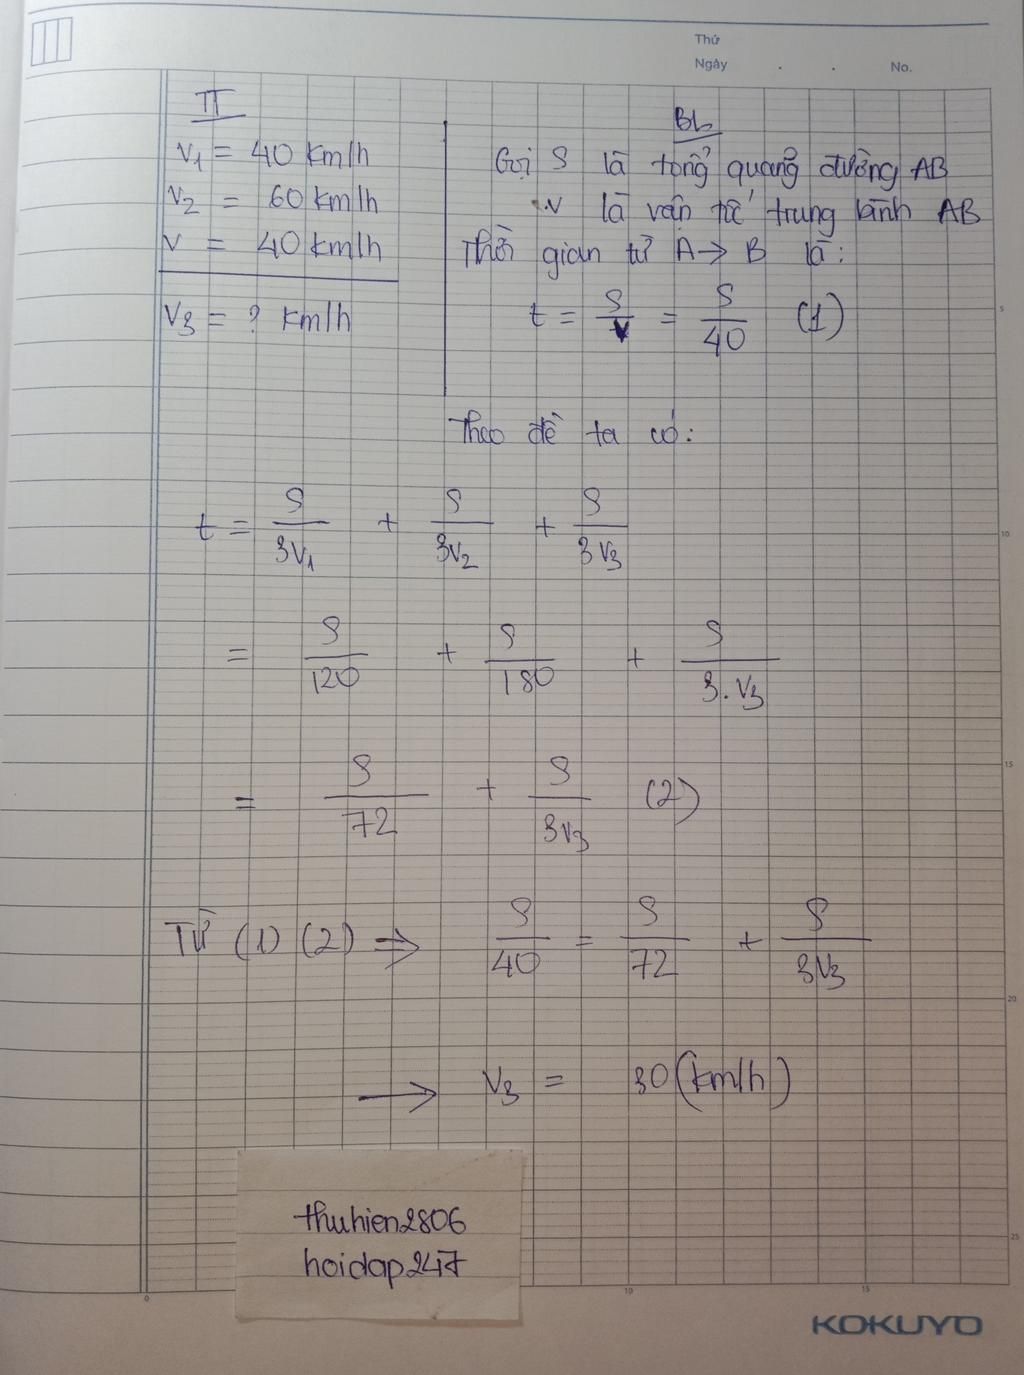 Thứ
Ngày . . No.
TT
V1 = 40 km/h
V2 = 60 km/h
V = 40 km/h
V3 = ? km/h
BL
Gọi S là tổng quảng đường AB
V là vận tốc trung bình AB
Thời gian từ A → B là:
t = S/V = S/40 (1)
Theo đề ta có:
t = S/3V1 + S/3V2 + S/3V3
= S/120 + S/180 + S/3.V3
= S/72 + S/3V3 (2)
Từ (1) (2) => S/40 = S/72 + S/3V3
→ V3 = 30 (km/h)
thuhien2806
hoidap247
5
10
15
20
25
0
10
15
KOKUYO